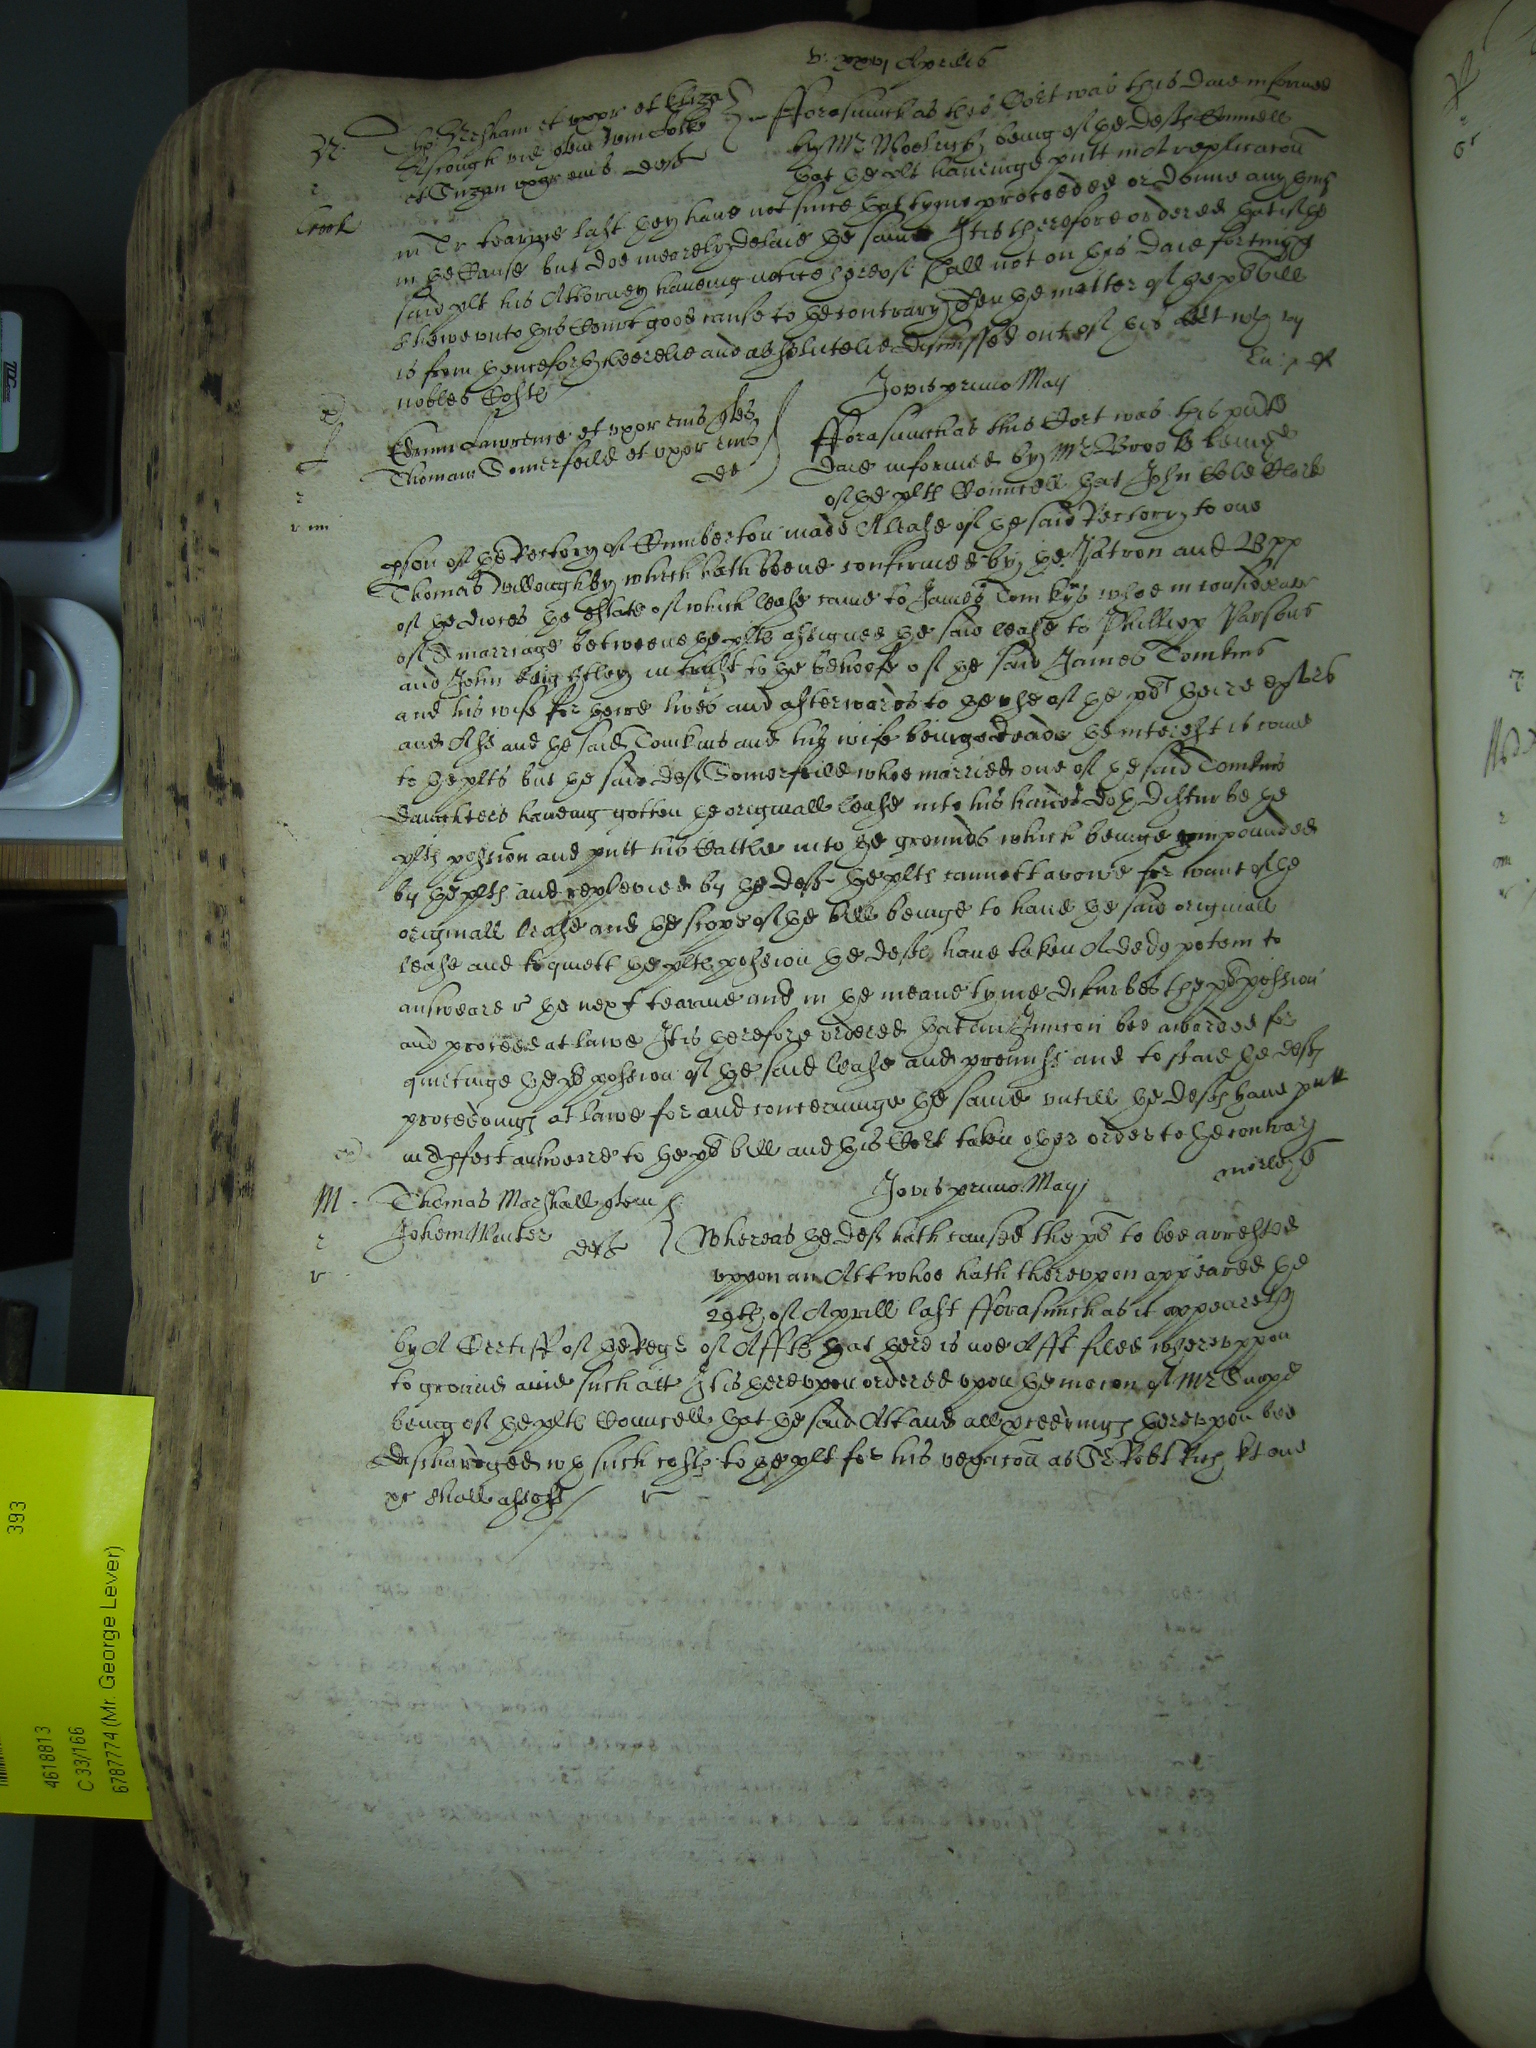 v: xxvi Aprilis
fforasmuch as this Cort was this daie informed
by Mr being of the defts Councell
that the plt haveinge putt in A replicacon
in Tr tearme last they have not since that tyme proceeded or donne any thing
in the Cause but doe meerely delaie the same It is therefore ordered that if the
said plt his Attorney haveing notice hereof shall not on this daie fortnight
shewe unto this Court good cause to the contrary then the matter of the pts bill
is from henceforth cleerelie and absolutelie dismissed out of this Cort wth xx
nobles Costs
et Suzan uxor eius defts
Crook
Jovis primo Maij
Edmm Lawrence et uxor eius plts
Thomam Somerfeild et uxor eius
de
fforasmuch as this Cort was this pnte
daie informed by Mr Brook being
of the plts Councell that John Cole Clerk
pson of the Rectory of Cumberton made A lease of the said Rectory to one
Thomas Willoughby which hath beene confirmed by the Patron and Bpp
of the dioces the estate of which lease came to James Tomkys whoe in consideracon
of A marriage betweene the plts assigned the said lease to Phillipp Parsons
and John Keightley in trust to the behoofe of the said James Tomkins
and his wife for theire lives and afterwards to the use of the plt theire exrs
and Ass and the said Tomkins and his wife being deade the interest is come
to the plts but the said deft Somerfeild whoe married one of the said Tomkins
daughters haveing gotten the originall lease into his hands doth disturbe the
plts possion and putt his Cattle into the grounds which beinge impounded
by the plts and replevied by the defts the plts cannott avowe for want of the
originall lease and the scope of the bill beinge to have the said originall
lease and to quiett the plts possion the defts have taken A ded potem to
answeare the next tearme and in the meane tyme disturbes the plts possion
and proceed at lawe It is therefore ordered that an Iniuncon bee awarded for
quietinge the plts possion of the said lease and premisses and to staie the defts
proceedings at lawe for and concerninge the same untill the defts have putt
in A pfect answeare to the plts bill and this Cort taken other order to the contrary
Jovis primo Maij
M
Thomas Marshall plt
Johem Winter
deft
Whereas the deft hath caused the plt to bee arrested
uppon an Att whoe hath thereupon appeared the
29th of Aprill last fforasmuch as it appeareth
by A Certiff of the Regr of Affts that there is noe Afft filed whereuppon
to ground anie such att It is thereupon ordered upon the mocon of Mr
being of the plts Councell that the said Att and all pceedings thereupon bee
discharged wth such costs to the plt for his vexacon as Sr Robt Rich kt one
shall assesse
393
4618813
C 33/166
6787774 (Mr. George Lever)